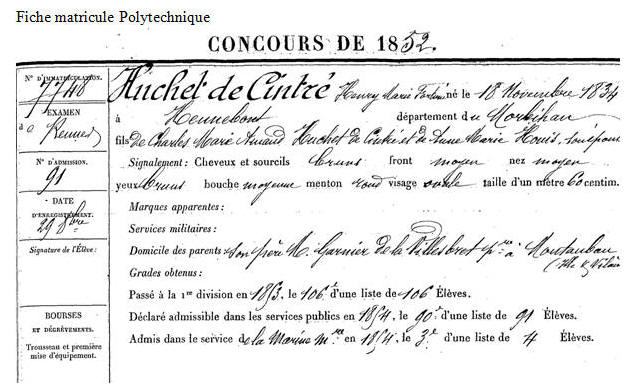 Fiche matricule Polytechnique
CONCOURS DE 1852.
N° D'IMMATRICULATION.
7748
EXAMEN
à Rennes
N° D'ADMISSION.
91
DATE
D'ENREGISTREMENT.
29 8bre
Signature de l'Élève :
BOURSES
ET DÉGRÈVEMENTS.
Trousseau et première
mise d'équipement.
Huchet de Cintré Henry Marie Fortuné né le 18 Novembre 1834
à Hennebont département du Morbihan
fils de Charles Marie Amand Huchet de Cintré et de Anne Marie Houis, son épouse
Signalement : Cheveux et sourcils bruns front moyen nez moyen
yeux bruns bouche moyenne menton rond visage ovale taille d'un mètre 60 centim.
Marques apparentes :
Services militaires :
Domicile des parents : son père M. Garnier de la Villesbret à Montauban
(Ille & Vilaine
Grades obtenus :
Passé à la 1re division en 1853, le 106e d'une liste de 106 Élèves.
Déclaré admissible dans les services publics en 1854, le 90e d'une liste de 91 Élèves.
Admis dans le service de la Marine en 1854, le 3e d'une liste de 4 Élèves.